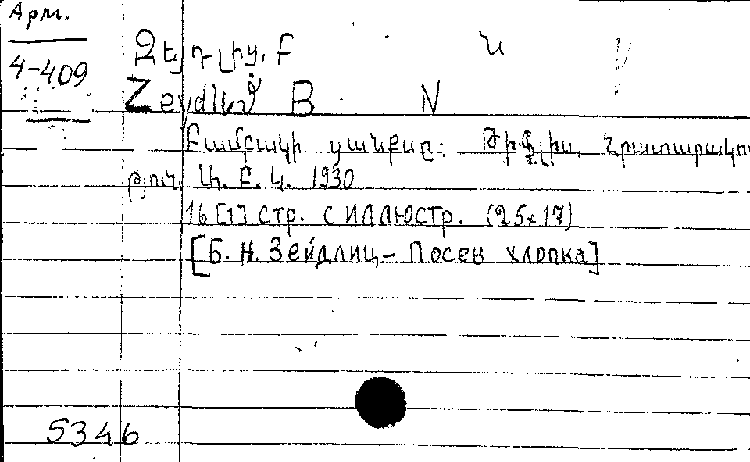 Арм.
4-409
Զեյդլից, Բ Ն
Zeydlit B N
Բամբակի ցանքսը: Թիֆլիս, Հրատարակու
թյուն
1930
16 [1] стр. с иллюстр. (25×17)
[Б. Н. Зейдлиц – Посев хлопка]
5346